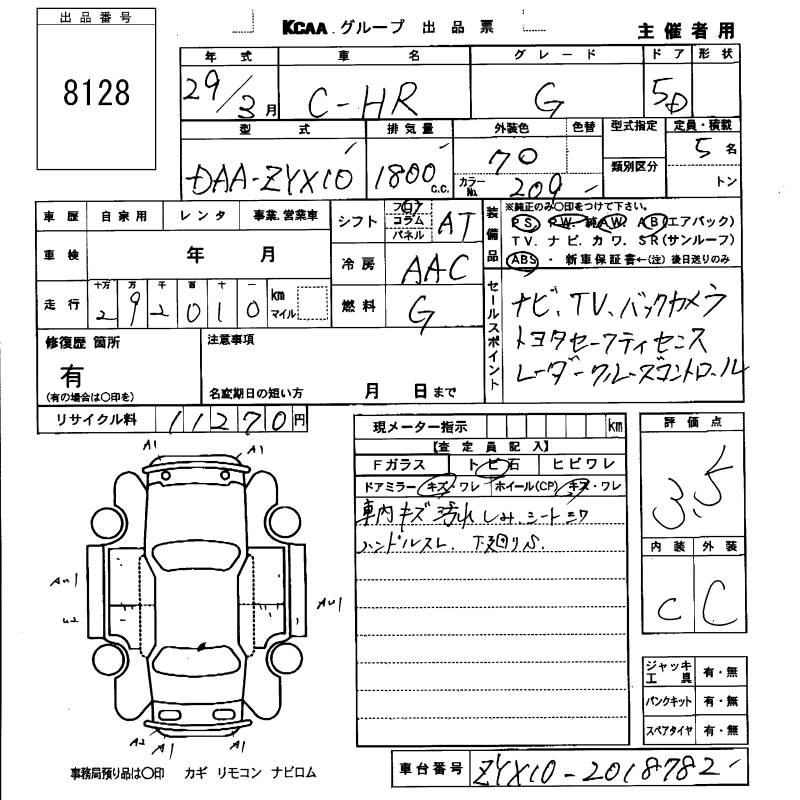 出品番号
8128
KCAA グループ 出品票
主催者用
年式 車名 グレード ドア 形状
29/3月 C-HR G 5D
型式 排気量 外装色 色替 型式指定 定員・積載
DAA-ZYX10 1800 c.c. 70 カラーNo. 209 類別区分 5名 トン
車歴 自家用 レンタ 事業、営業車
車検 年 月
走行 十万 万 千 百 十 一
2 9 2 0 1 0 km マイル
シフト フロア コラム パネル AT
冷房 AAC
燃料 G
装備品
※純正のみ〇印をつけて下さい。
PS. PW. 純AW. AB(エアバック)
TV. ナビ. カワ. SR(サンルーフ)
ABS ・ 新車保証書←(注)後日送りのみ
セールスポイント
ナビ、TV、バックカメラ
トヨタセーフティセンス
レーダークルーズコントロール
修復歴 箇所
有
(有の場合は〇印を)
注意事項
名変期日の短い方 月 日まで
リサイクル料 11270円
現メーター指示 km
【査定員記入】
Fガラス トビ石 ヒビワレ
ドアミラー キズ・ワレ ホイール(CP) キズ・ワレ
車内キズ 汚れ しみ. シートシワ
ハンドルスレ. 下廻りS.
評価点
3.5
内装 外装
C C
A1 A1
AU1
AU1
A2 A1 A1
ジャッキ工具 有・無
パンクキット 有・無
スペアタイヤ 有・無
事務局預り品は〇印 カギ リモコン ナビロム
車台番号 ZYX10-2018782